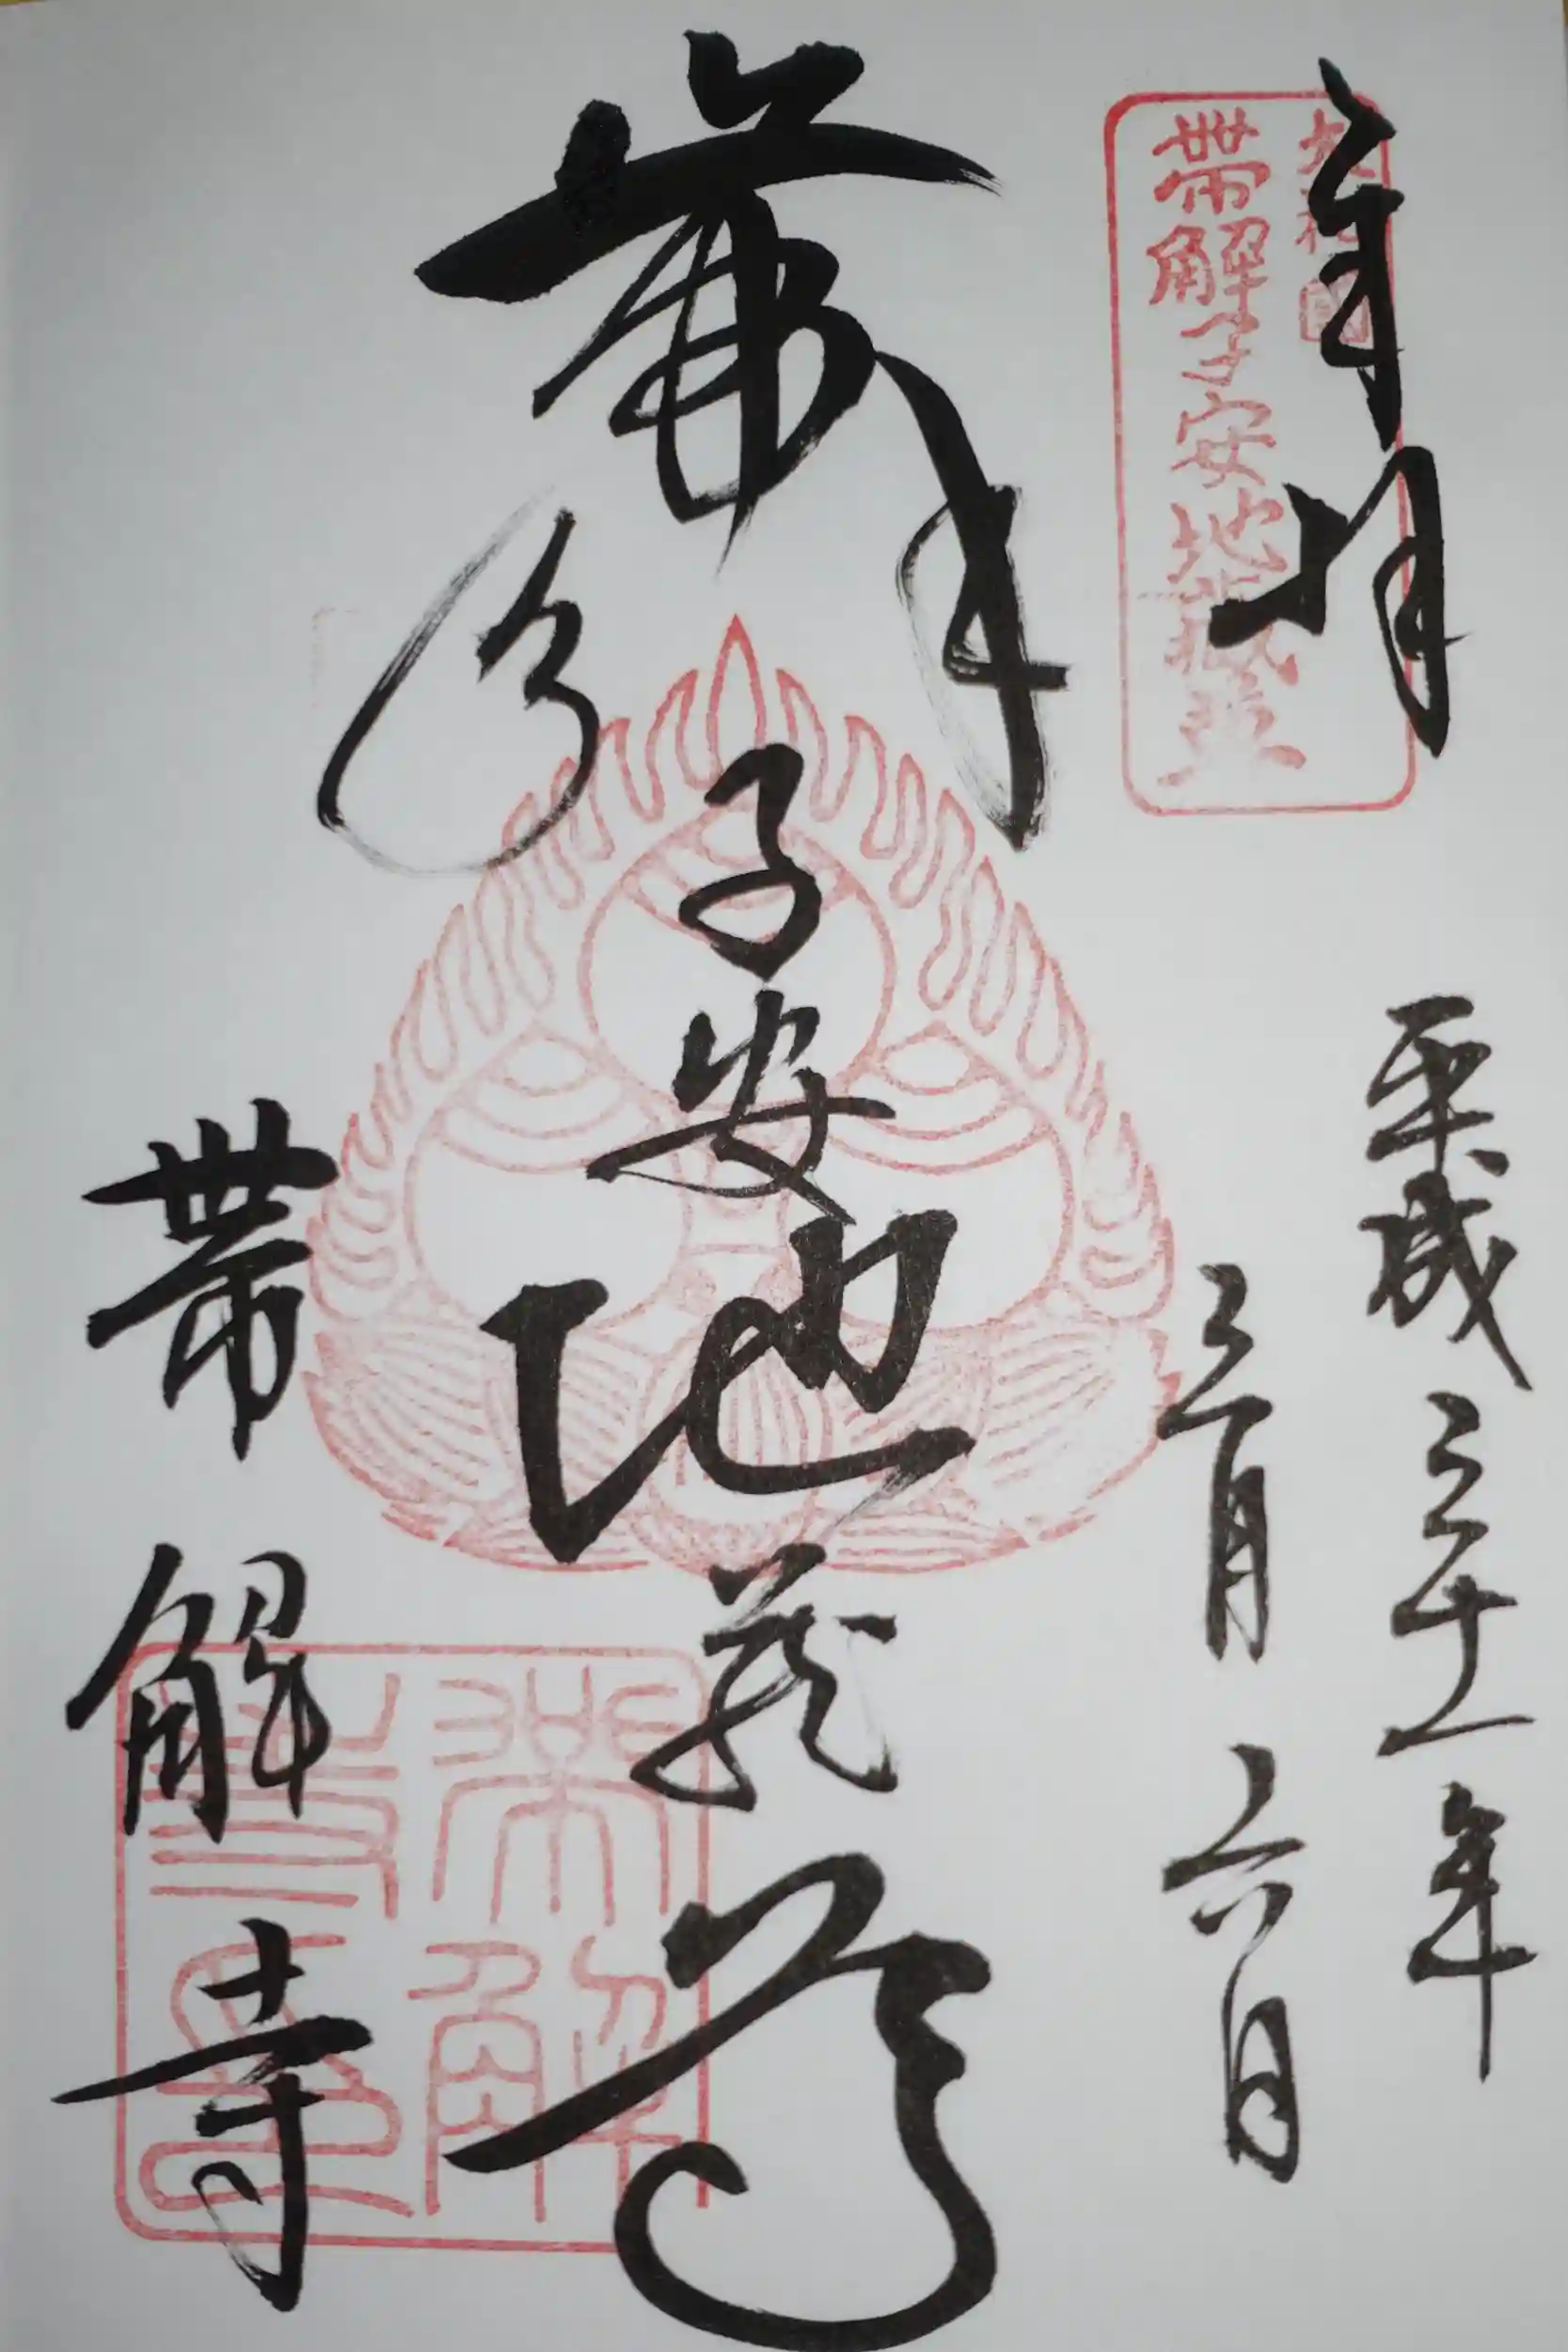 奉拝
大和国
帯解子安地蔵尊
平成三十一年
三月六日
帯解子安地蔵尊
帯解寺
帯解寺印